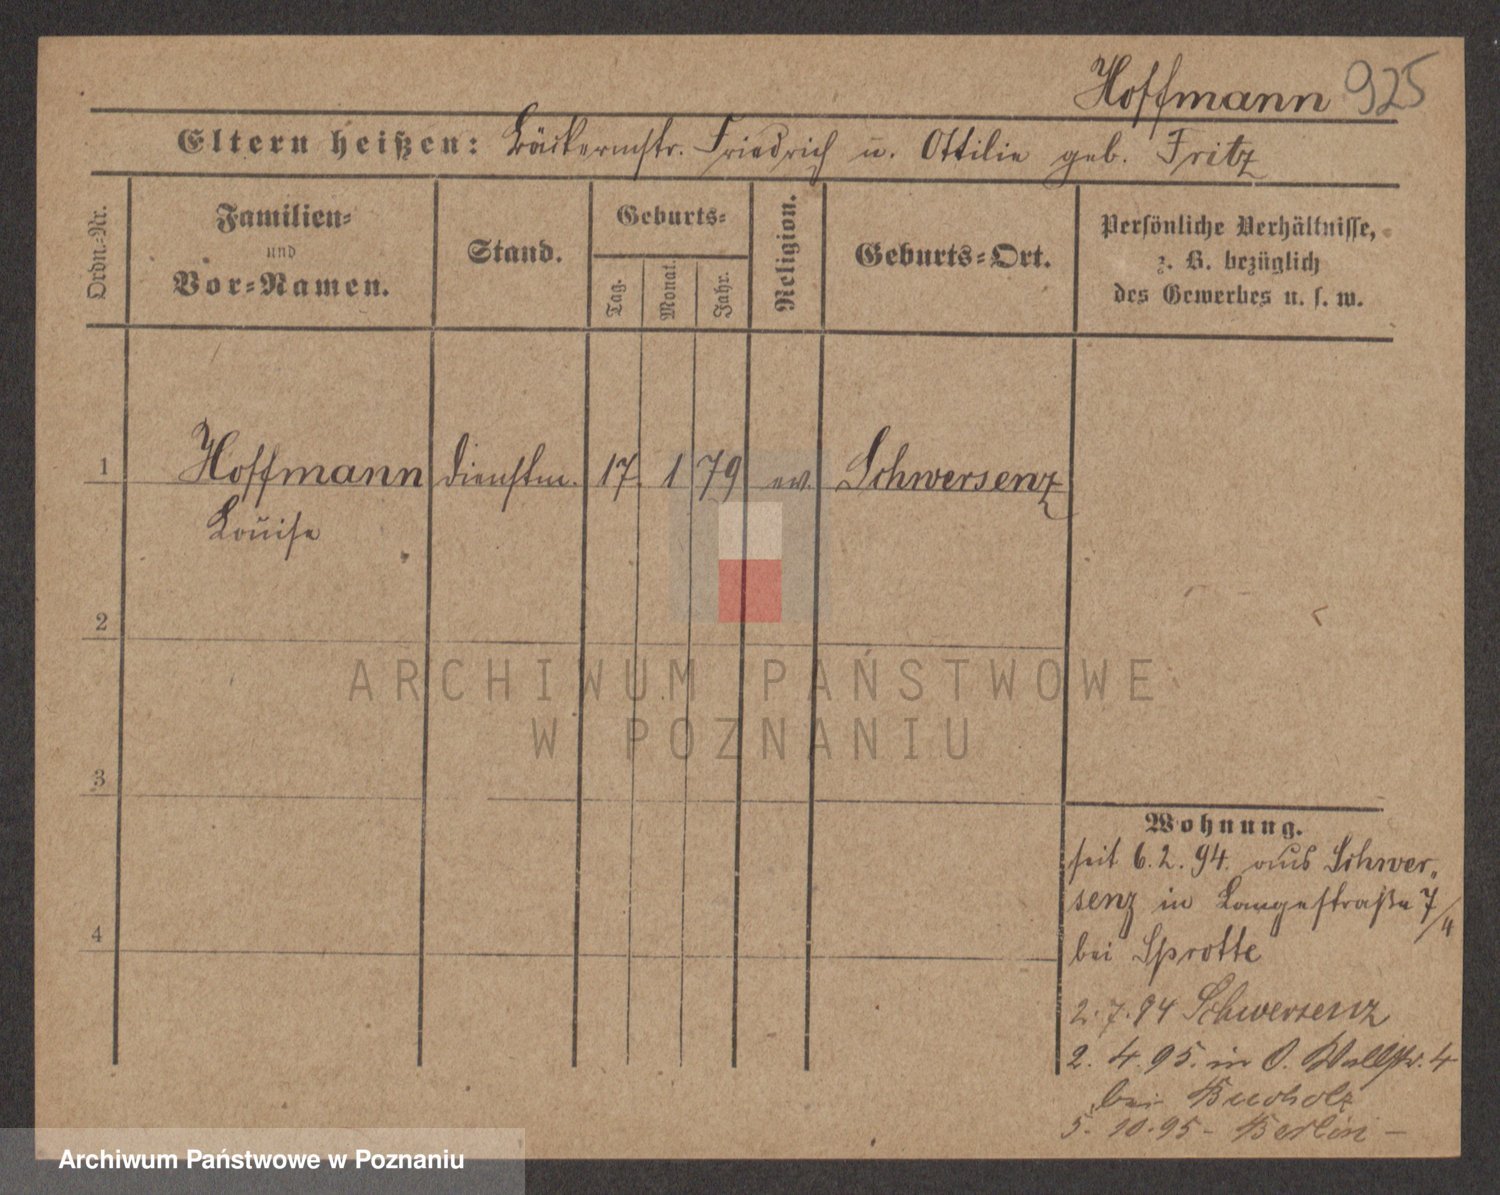 Hoffmann 925
Eltern heißen: Bäckermstr. Friedrich u. Ottilie geb. Fritz
Ordn.=Nr.
Familien=
und
Vor=Namen.
Stand.
Geburts=
Tag.
Monat.
Jahr.
Religion.
Geburts=Ort.
Persönliche Verhältnisse,
z. B. bezüglich
des Gewerbes u. s. w.
1 Hoffmann Dienstm. 17 1 79 ev. Schwersenz
Louise
2
3
4
Wohnung.
seit 6.2.94. aus Schwer„
senz in Langestraße 7/II
bei Sprotte
2.7.94 Schwersenz
2.4.95. in O. Wallstr. 4
bei Bucholz
5.10.95 - Berlin -
ARCHIWUM PAŃSTWOWE
W POZNANIU
Archiwum Państwowe w Poznaniu